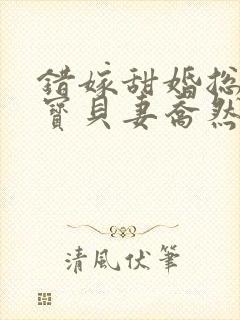 错嫁甜婚总
寶貝妻喬然
清風伏筆